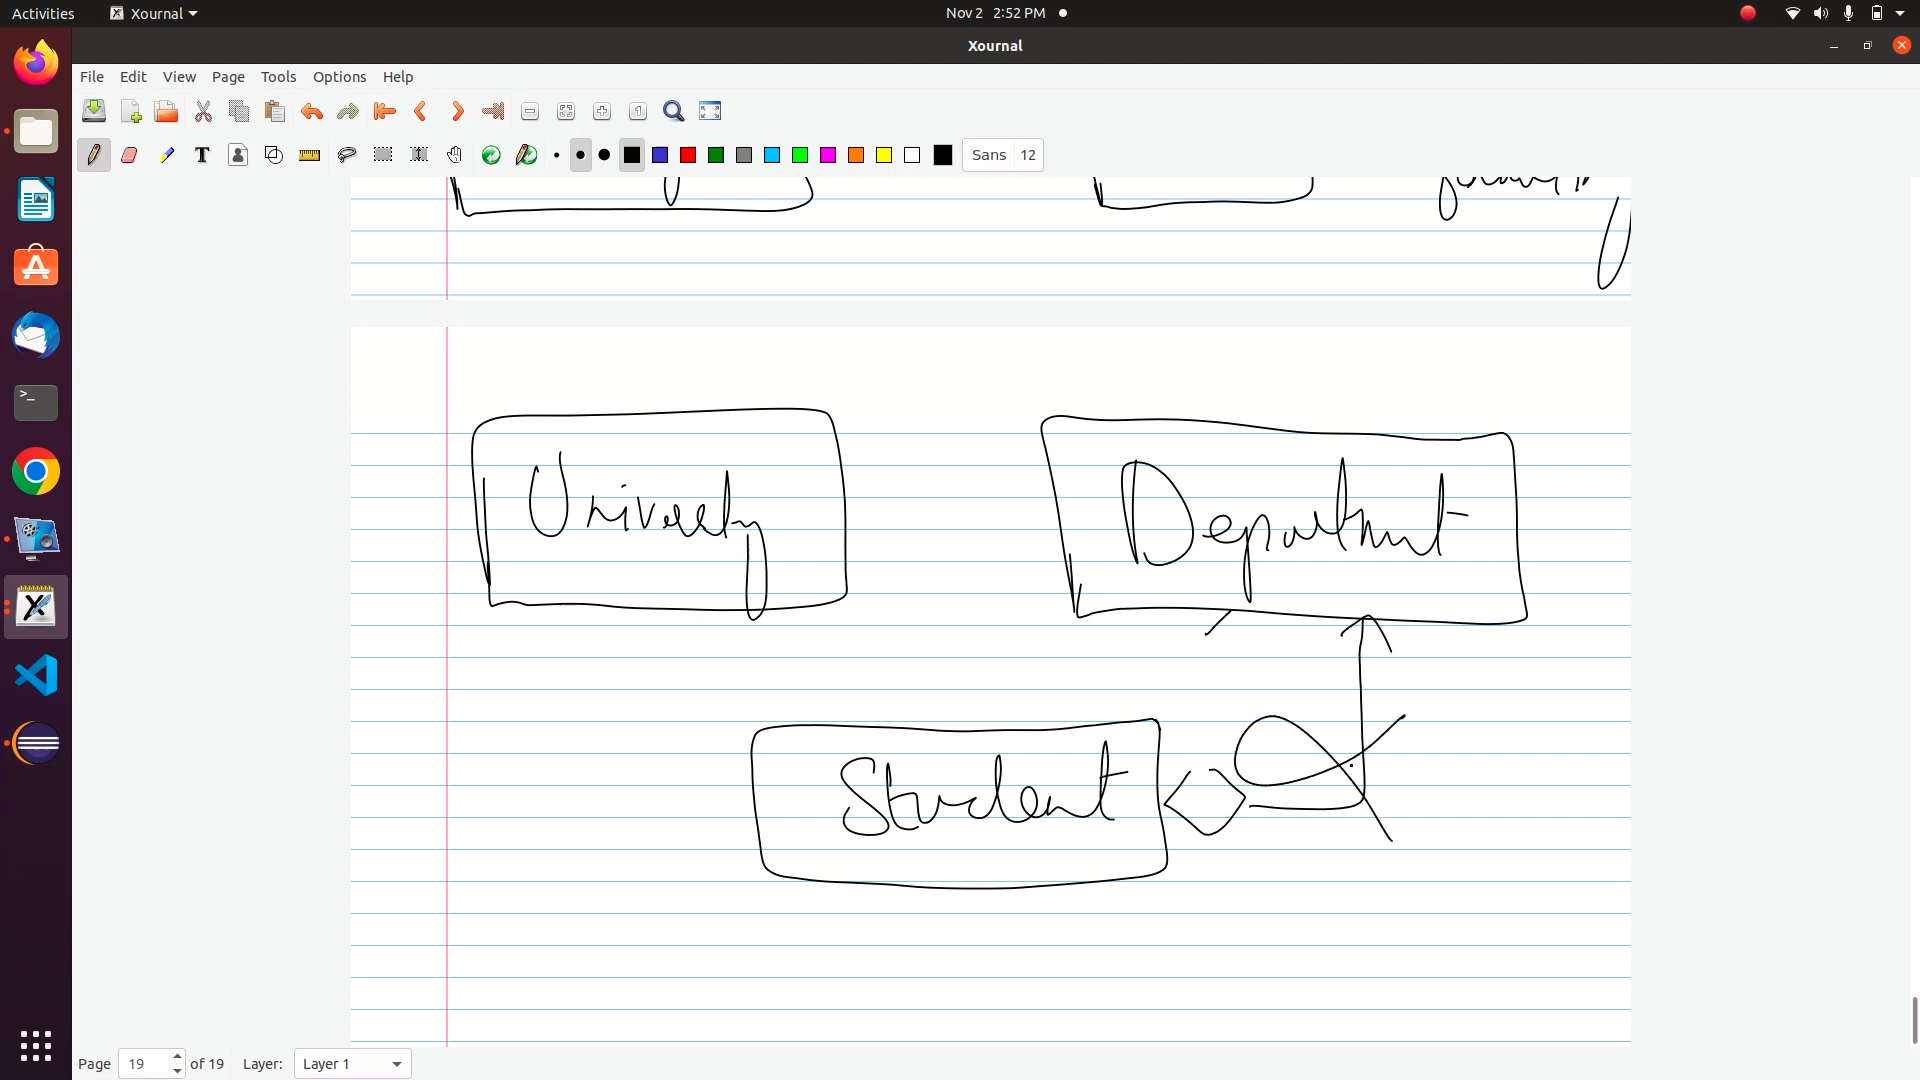 Activities Xournal Nov 2 2:52 PM
Xournal
File Edit View Page Tools Options Help
Sans 12
University Department
Student
Page 19 of 19 Layer: Layer 1